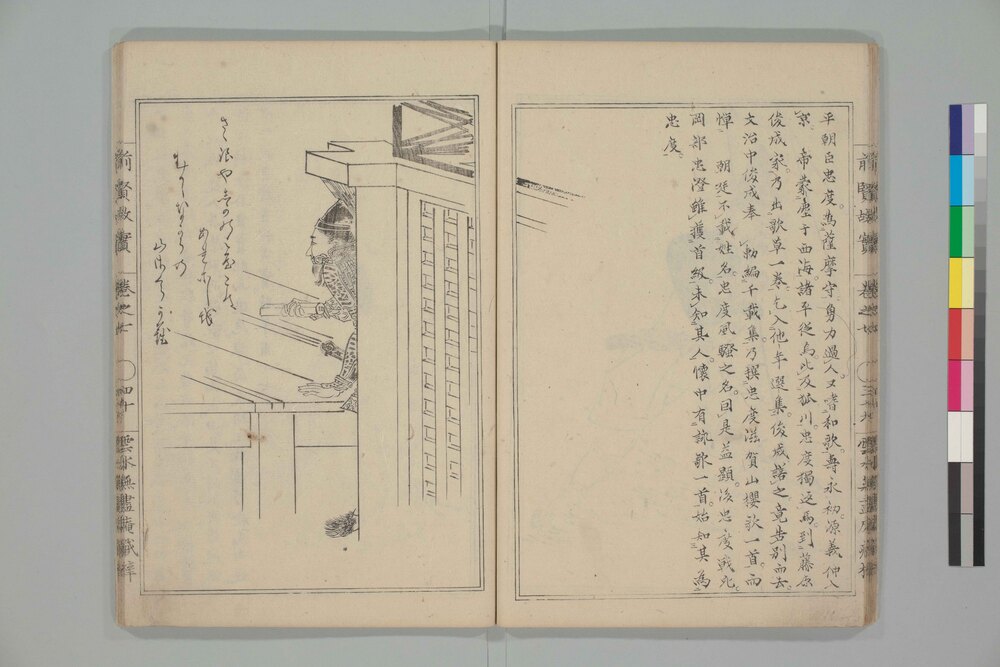 平朝臣忠度。為薩摩守。勇力過人。又嗜和歌。壽永初。源義仲入
京。帝蒙塵于西海。諸平從焉。此及狐川。忠度獨返馬。到藤原
俊成家。乃出歌草一卷。乞入他年選集。俊成諾之。竟告別而去。
文治中俊成奉 勅編千載集。乃撰忠度滋賀山櫻歌一首。而
憚 朝廷不載姓名。忠度風騷之名。因是益顯。後忠度戰死。
岡部忠澄雖獲首級。未知其人。懷中有詠歌一首。始知其為
忠度。
前賢故實 卷之廿
さゝ浪や志賀の都は
あれにしを
むかしなからの
山さくらかな
前賢故實 卷之廿 四十 雲水無盡庵藏梓